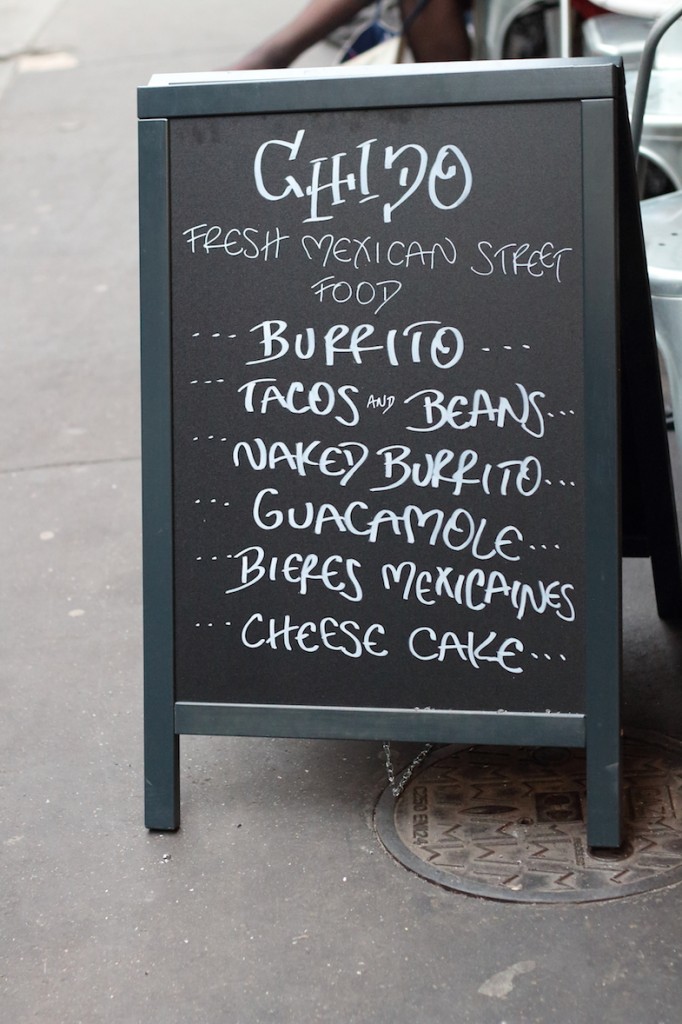 CHIDO
FRESH MEXICAN STREET
FOOD
... BURRITO ....
... TACOS AND BEANS...
... NAKED BURRITO...
... GUACAMOLE...
... BIERES MEXICAINES
... CHEESE CAKE...